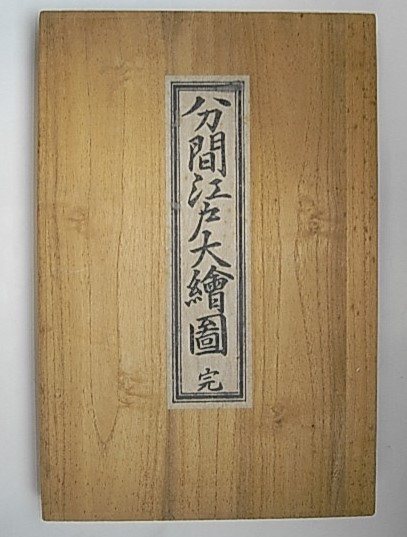 分間江戸大繪圖 完